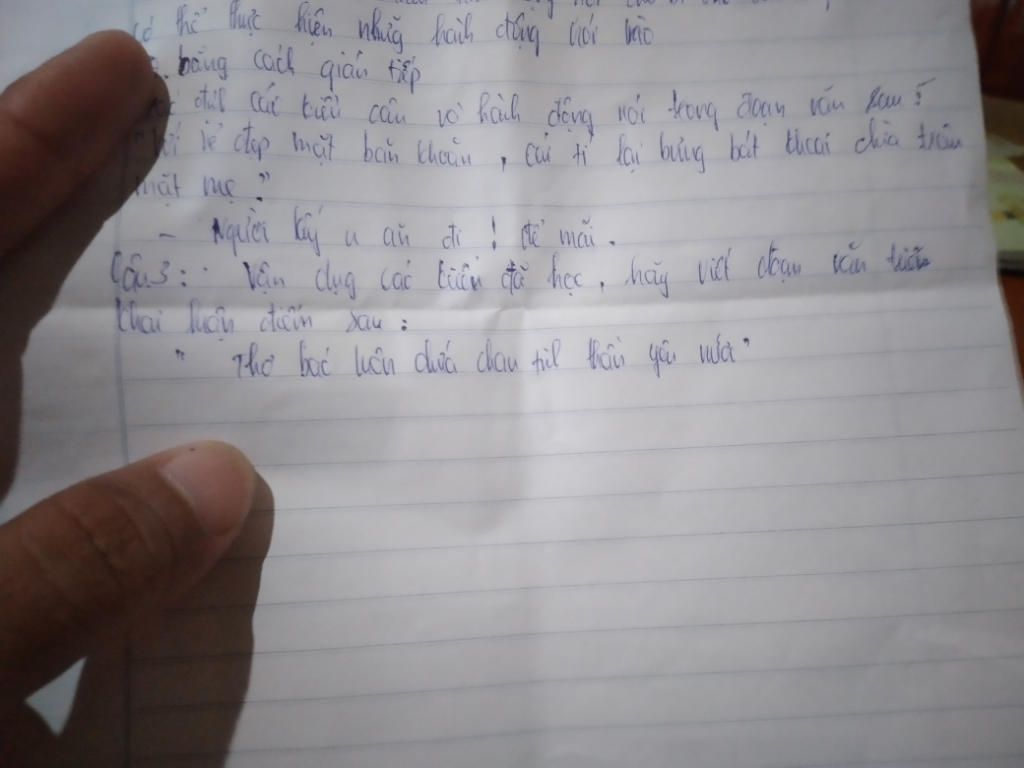 có thể thực hiện những hành động nói nào
bằng cách gián tiếp
định các kiểu câu và hành động nói trong đoạn văn sau?
vẻ đẹp mặt băn khoăn, cái tí lại bưng bát khoai chìa trước
mặt mẹ."
- Người lấy u ăn đi ! để mãi.
Câu 3: Vận dụng các kiến đã học, hãy viết đoạn văn triển
khai luận điểm sau:
" Thơ bác luôn chứa chan tinh thần yêu nước"